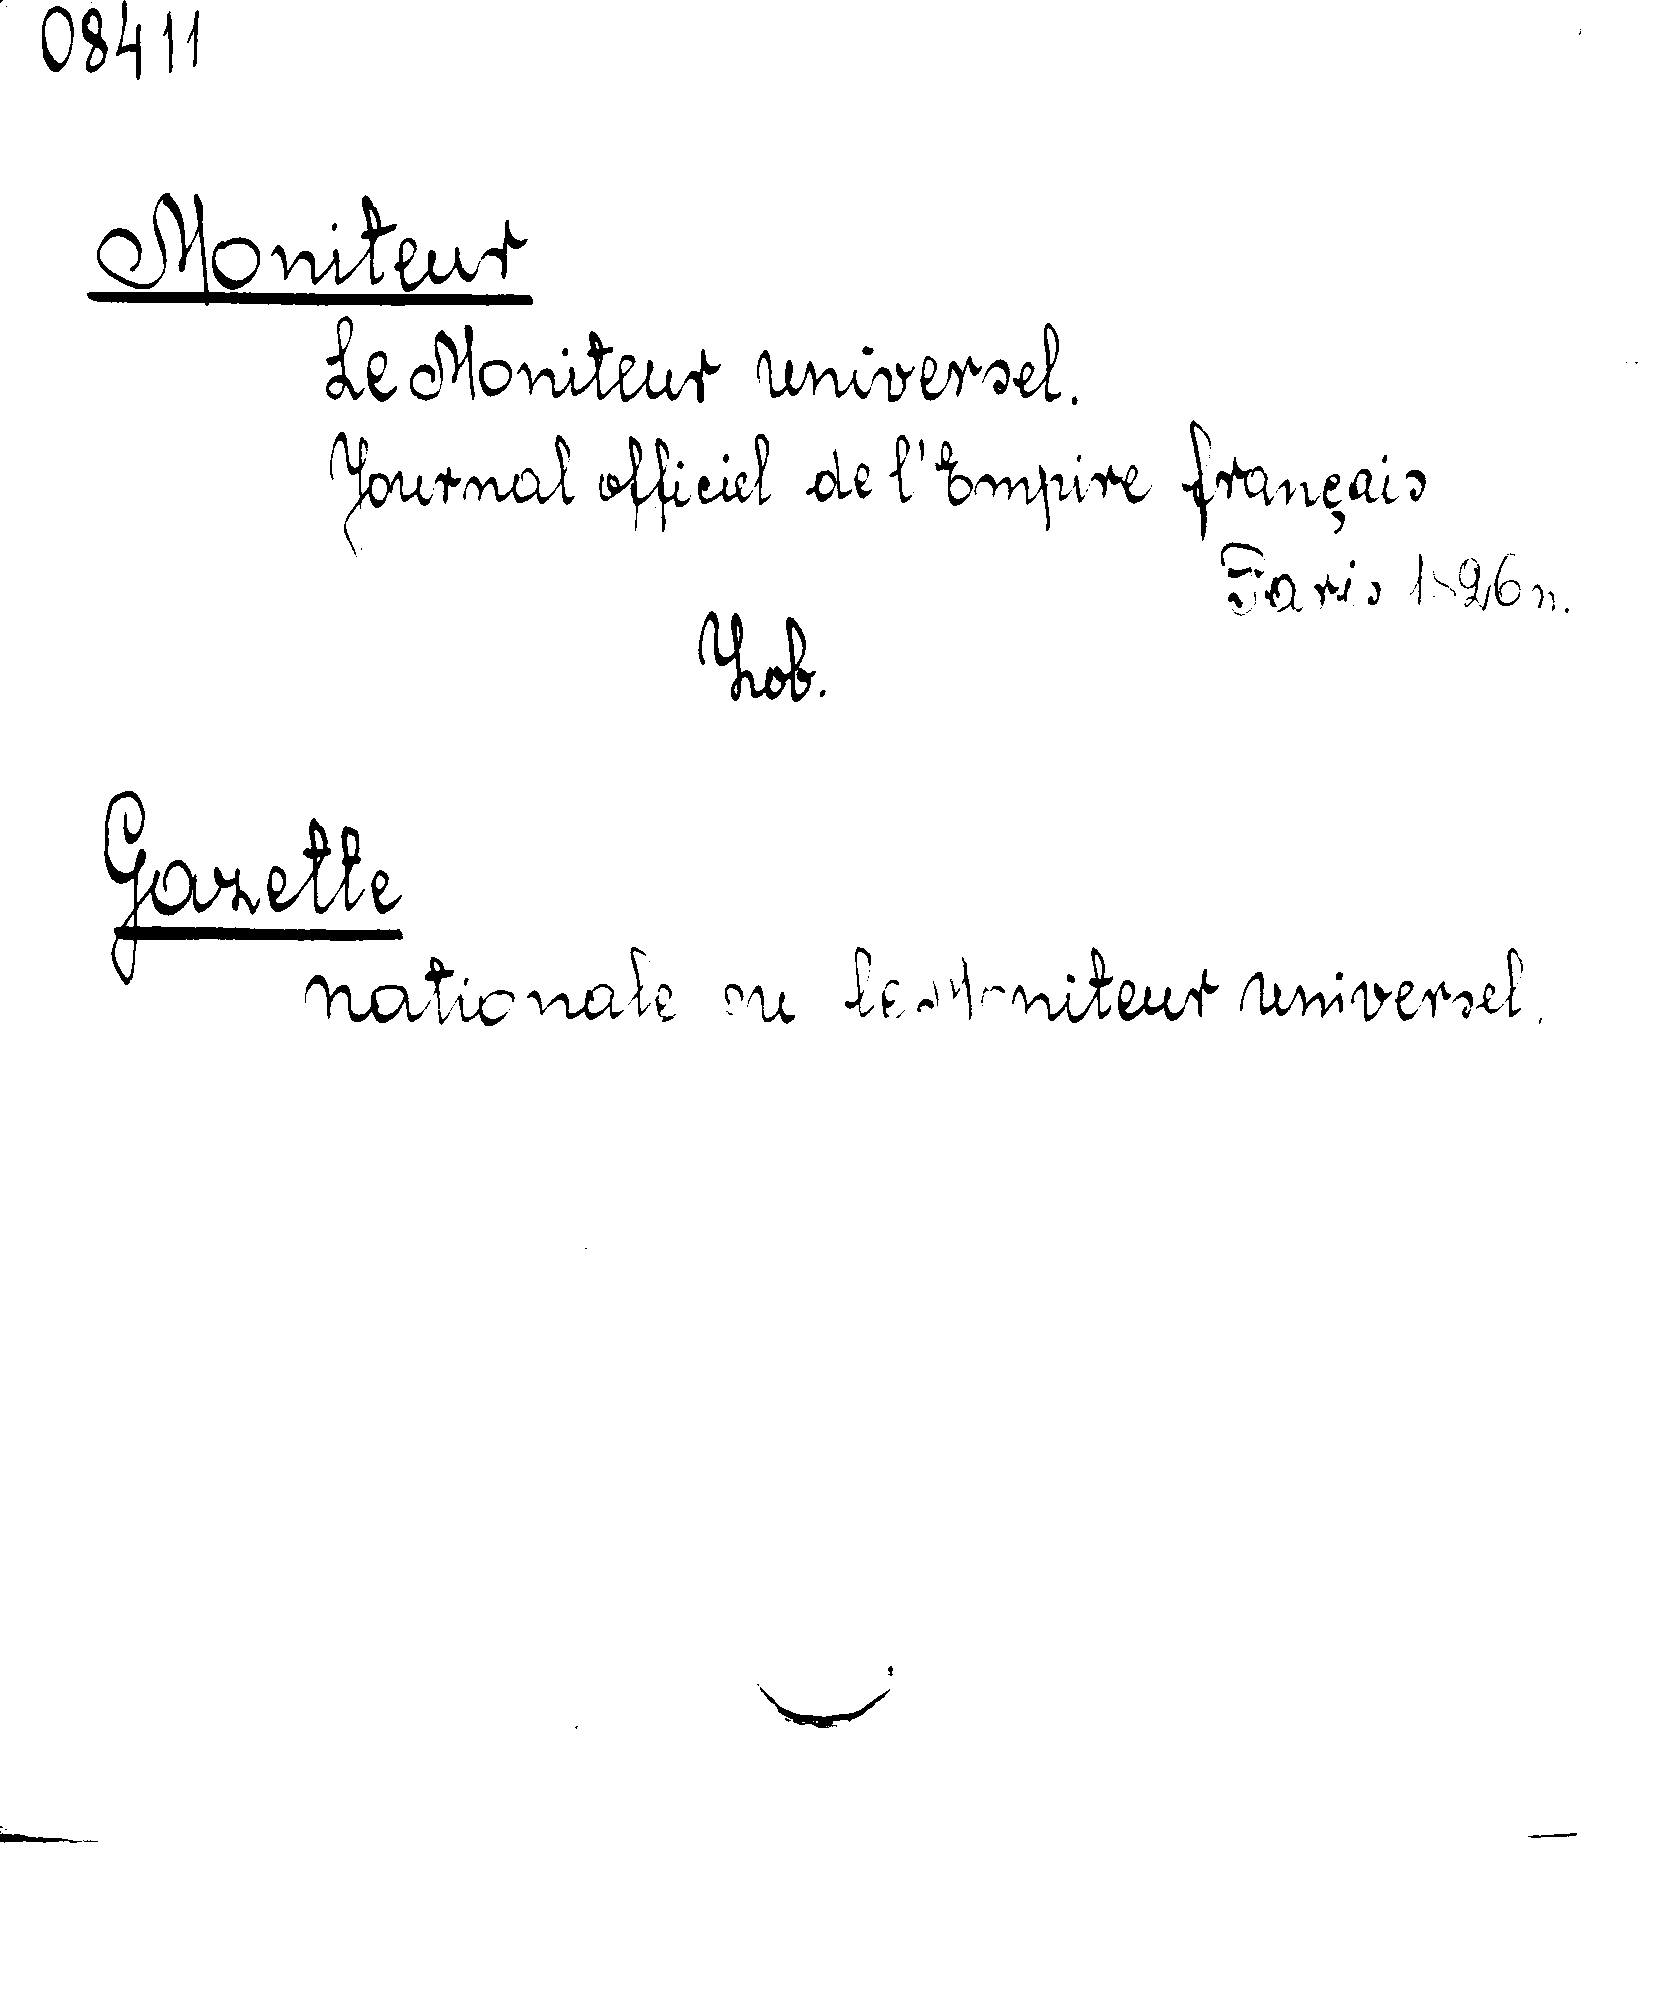 08411
Moniteur
Le Moniteur universel.
Journal officiel de l'Empire français
Paris
Zob.
Gazette
nationale ou le Moniteur universel.